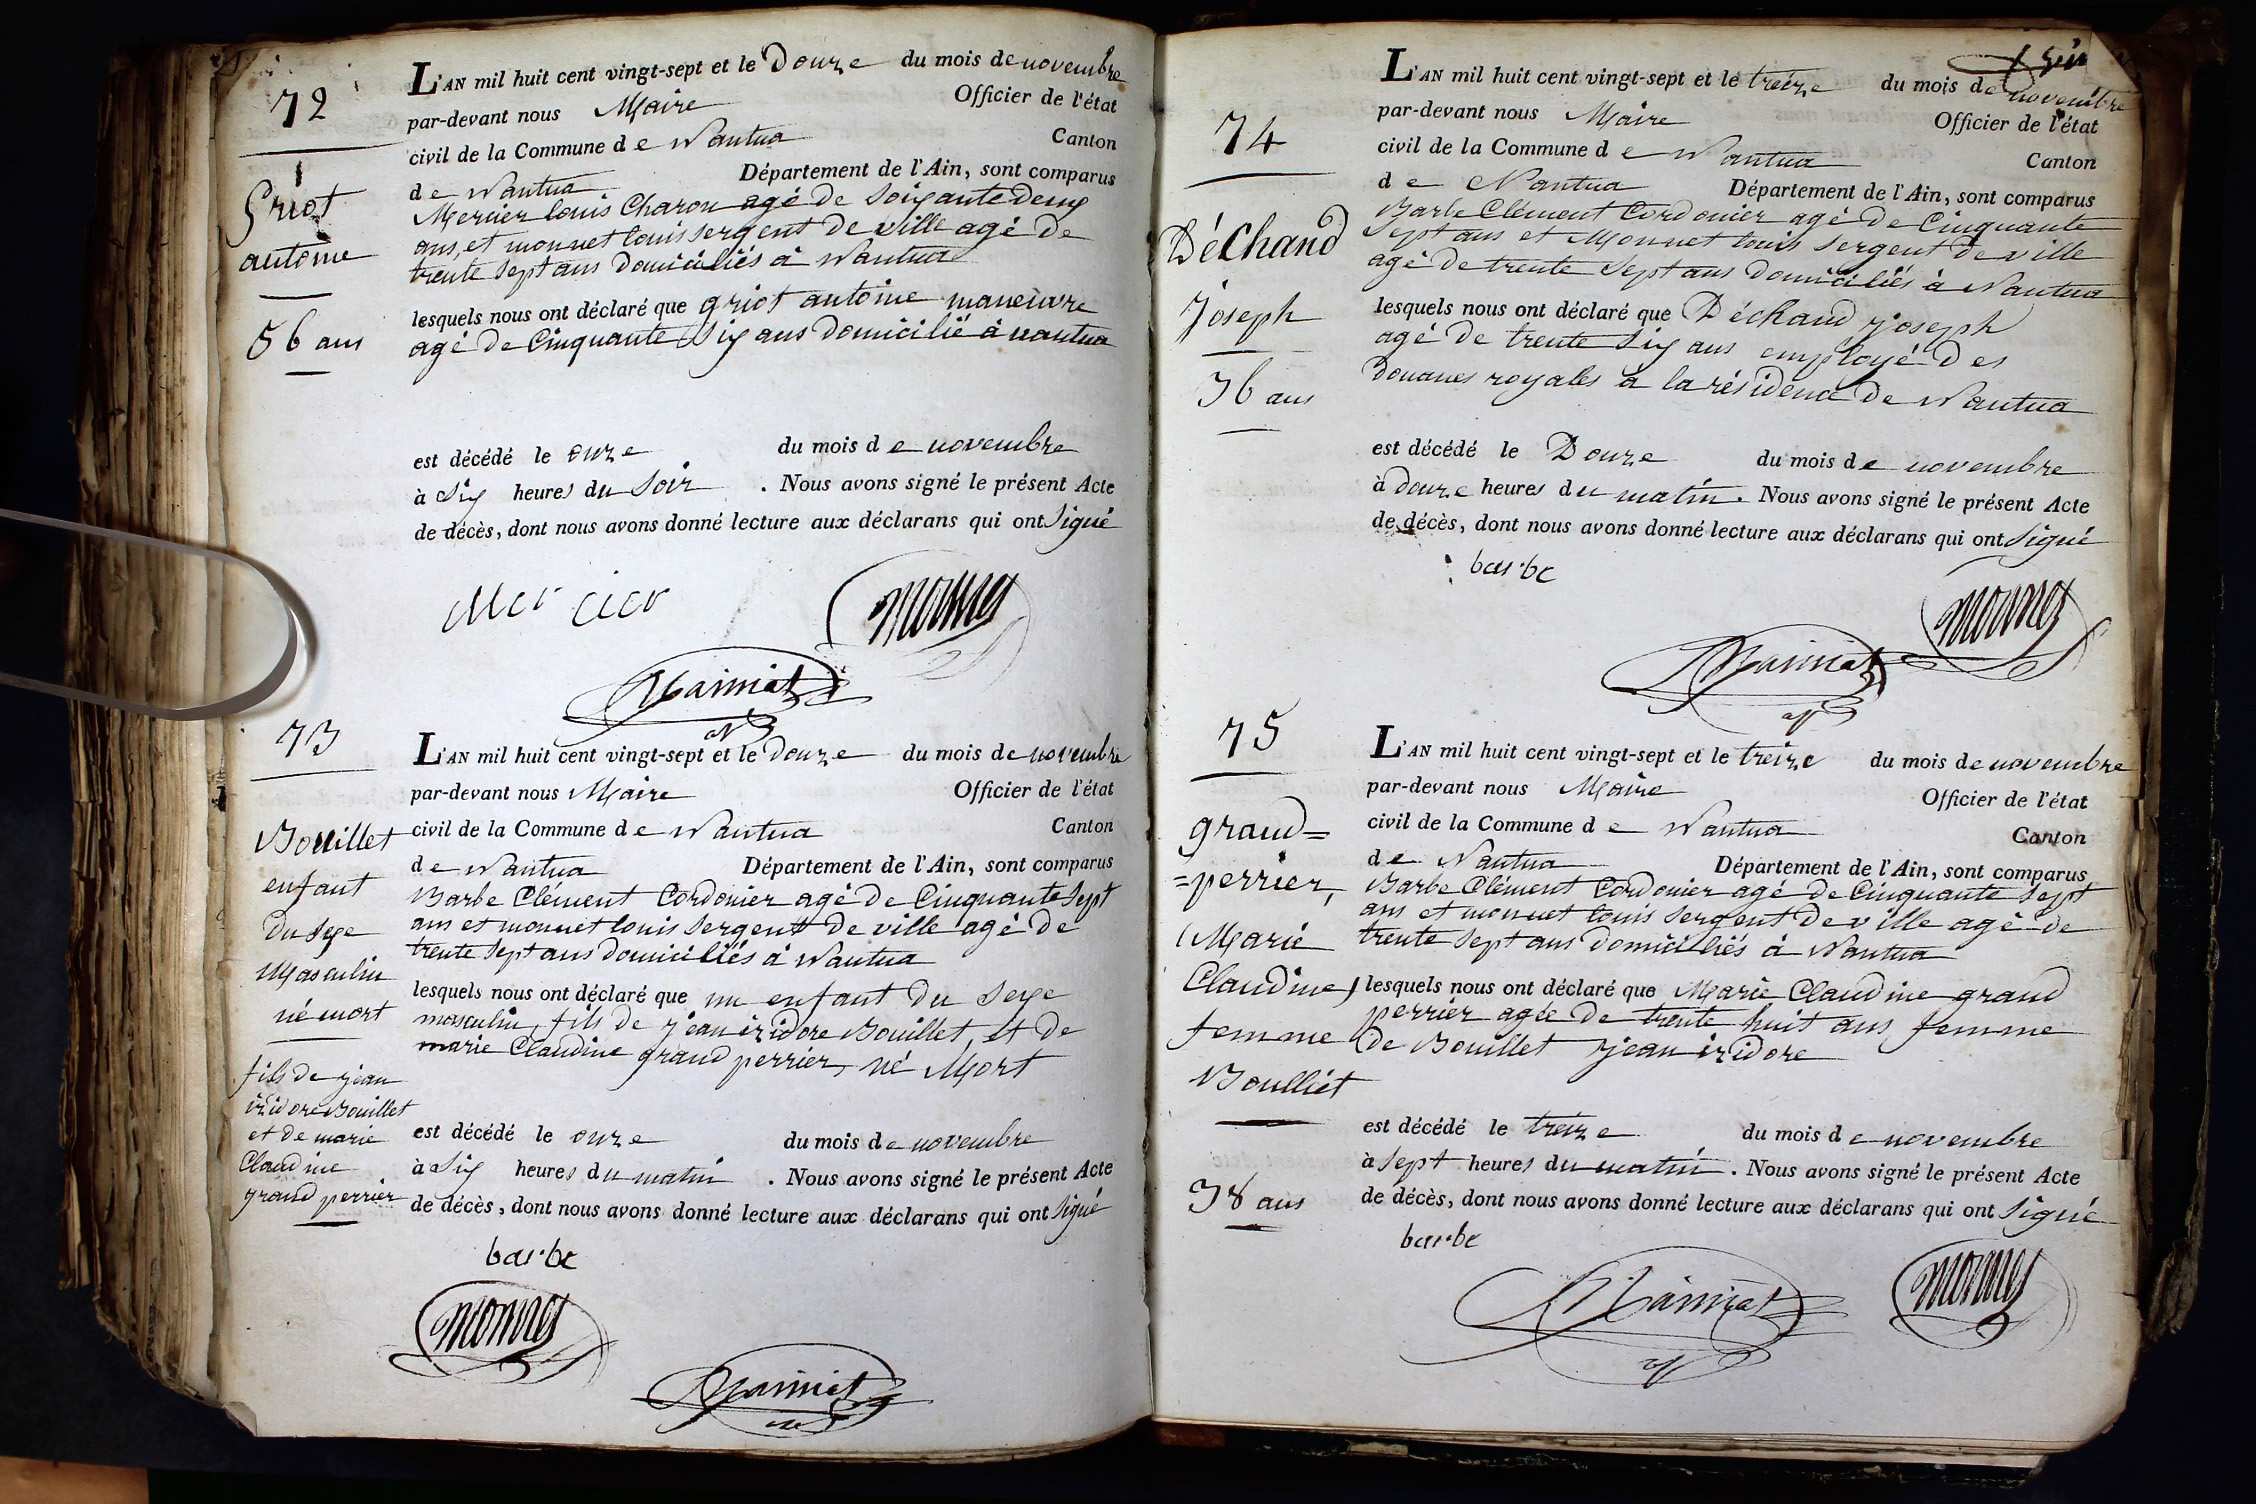 72
Griot
antoine
56 ans
L'AN mil huit cent vingt-sept et le Douze du mois de novembre
par-devant nous Maire Officier de l'état
civil de la Commune de Nantua Canton
de Nantua Département de l'Ain, sont comparus
Mercier louis Charon agé de soixante deux
ans, et monnet louis sergent de ville agé de
trente sept ans domiciliés à Nantua
lesquels nous ont déclaré que griot antoine manœuvre
agé de Cinquante six ans domicilié à nantua
est décédé le onze du mois de novembre
à six heures du soir . Nous avons signé le présent Acte
de décès, dont nous avons donné lecture aux déclarans qui ont signé
Mercier
monnet
73
Bouillet
enfant
du sexe
Masculin
né mort
fils de jean
izidore Bouillet
et de marie
Claudine
grand perrier
L'AN mil huit cent vingt-sept et le Douze du mois de novembre
par-devant nous Maire Officier de l'état
civil de la Commune de Nantua Canton
de Nantua Département de l'Ain, sont comparus
Barbe Clément Cordonier agé de Cinquante sept
ans et monnet louis sergent de ville agé de
trente sept ans domiciliés à Nantua
lesquels nous ont déclaré que un enfant du sexe
masculin, fils de jean izidore Bouillet, et de
marie Claudine grand perrier, né Mort
est décédé le onze du mois de novembre
à six heures du matin . Nous avons signé le présent Acte
de décès, dont nous avons donné lecture aux déclarans qui ont signé
barbe
monnet
74
Déchand
joseph
36 ans
L'AN mil huit cent vingt-sept et le treize du mois de novembre
par-devant nous Maire Officier de l'état
civil de la Commune de Nantua Canton
de Nantua Département de l'Ain, sont comparus
Barbe Clément Cordonier agé de Cinquante
sept ans et Monnet louis sergent de ville
agé de trente sept ans domiciliés à Nantua
lesquels nous ont déclaré que Déchand joseph
agé de trente six ans employé des
Douanes royales à la résidence de Nantua
est décédé le Douze du mois de novembre
à douze heures du matin. Nous avons signé le présent Acte
de décès, dont nous avons donné lecture aux déclarans qui ont signé
barbe
monnet
75
grand=
=perrier,
Marie
Claudine
femme
Boulliet
38 ans
L'AN mil huit cent vingt-sept et le treize du mois de novembre
par-devant nous Maire Officier de l'état
civil de la Commune de Nantua Canton
de Nantua Département de l'Ain, sont comparus
Barbe Clément Cordonier agé de Cinquante sept
ans et monnet louis sergent de ville agé de
trente sept ans domiciliés à Nantua
lesquels nous ont déclaré que Marie Claudine grand
perrier agée de trente huit ans femme
de Bouillet jean izidore
est décédé le treize du mois de novembre
à sept heures du matin. Nous avons signé le présent Acte
de décès, dont nous avons donné lecture aux déclarans qui ont signé
barbe
monnet